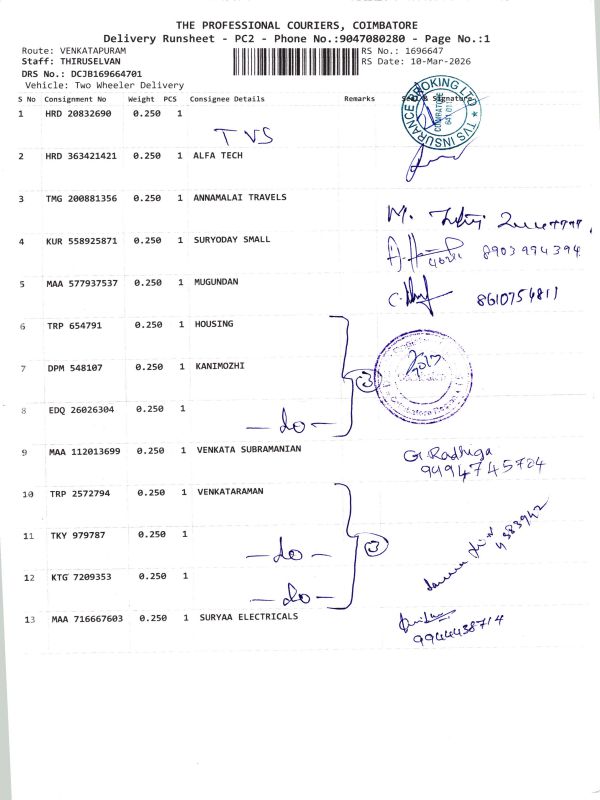 THE PROFESSIONAL COURIERS, COIMBATORE
Delivery Runsheet - PC2 - Phone No.:9047080280 - Page No.:1
Route: VENKATAPURAM RS No.: 1696647
Staff: THIRUSELVAN RS Date: 10-Mar-2026
DRS No.: DCJB169664701
Vehicle: Two Wheeler Delivery
S No Consignment No Weight PCS Consignee Details Remarks Seal & Signature
1 HRD 20832690 0.250 1
TVS
TVS INSURANCE BROKING LTD
COIMBATORE
2 HRD 363421421 0.250 1 ALFA TECH
3 TMG 200881356 0.250 1 ANNAMALAI TRAVELS
M.
4 KUR 558925871 0.250 1 SURYODAY SMALL
8903994394
5 MAA 577937537 0.250 1 MUGUNDAN
8610754811
6 TRP 654791 0.250 1 HOUSING
7 DPM 548107 0.250 1 KANIMOZHI
3
8 EDQ 26026304 0.250 1
-do-
9 MAA 112013699 0.250 1 VENKATA SUBRAMANIAN
G. Radhiga
9494745704
10 TRP 2572794 0.250 1 VENKATARAMAN
11 TKY 979787 0.250 1
-do-
3
12 KTG 7209353 0.250 1
-do-
13 MAA 716667603 0.250 1 SURYAA ELECTRICALS
9944438714